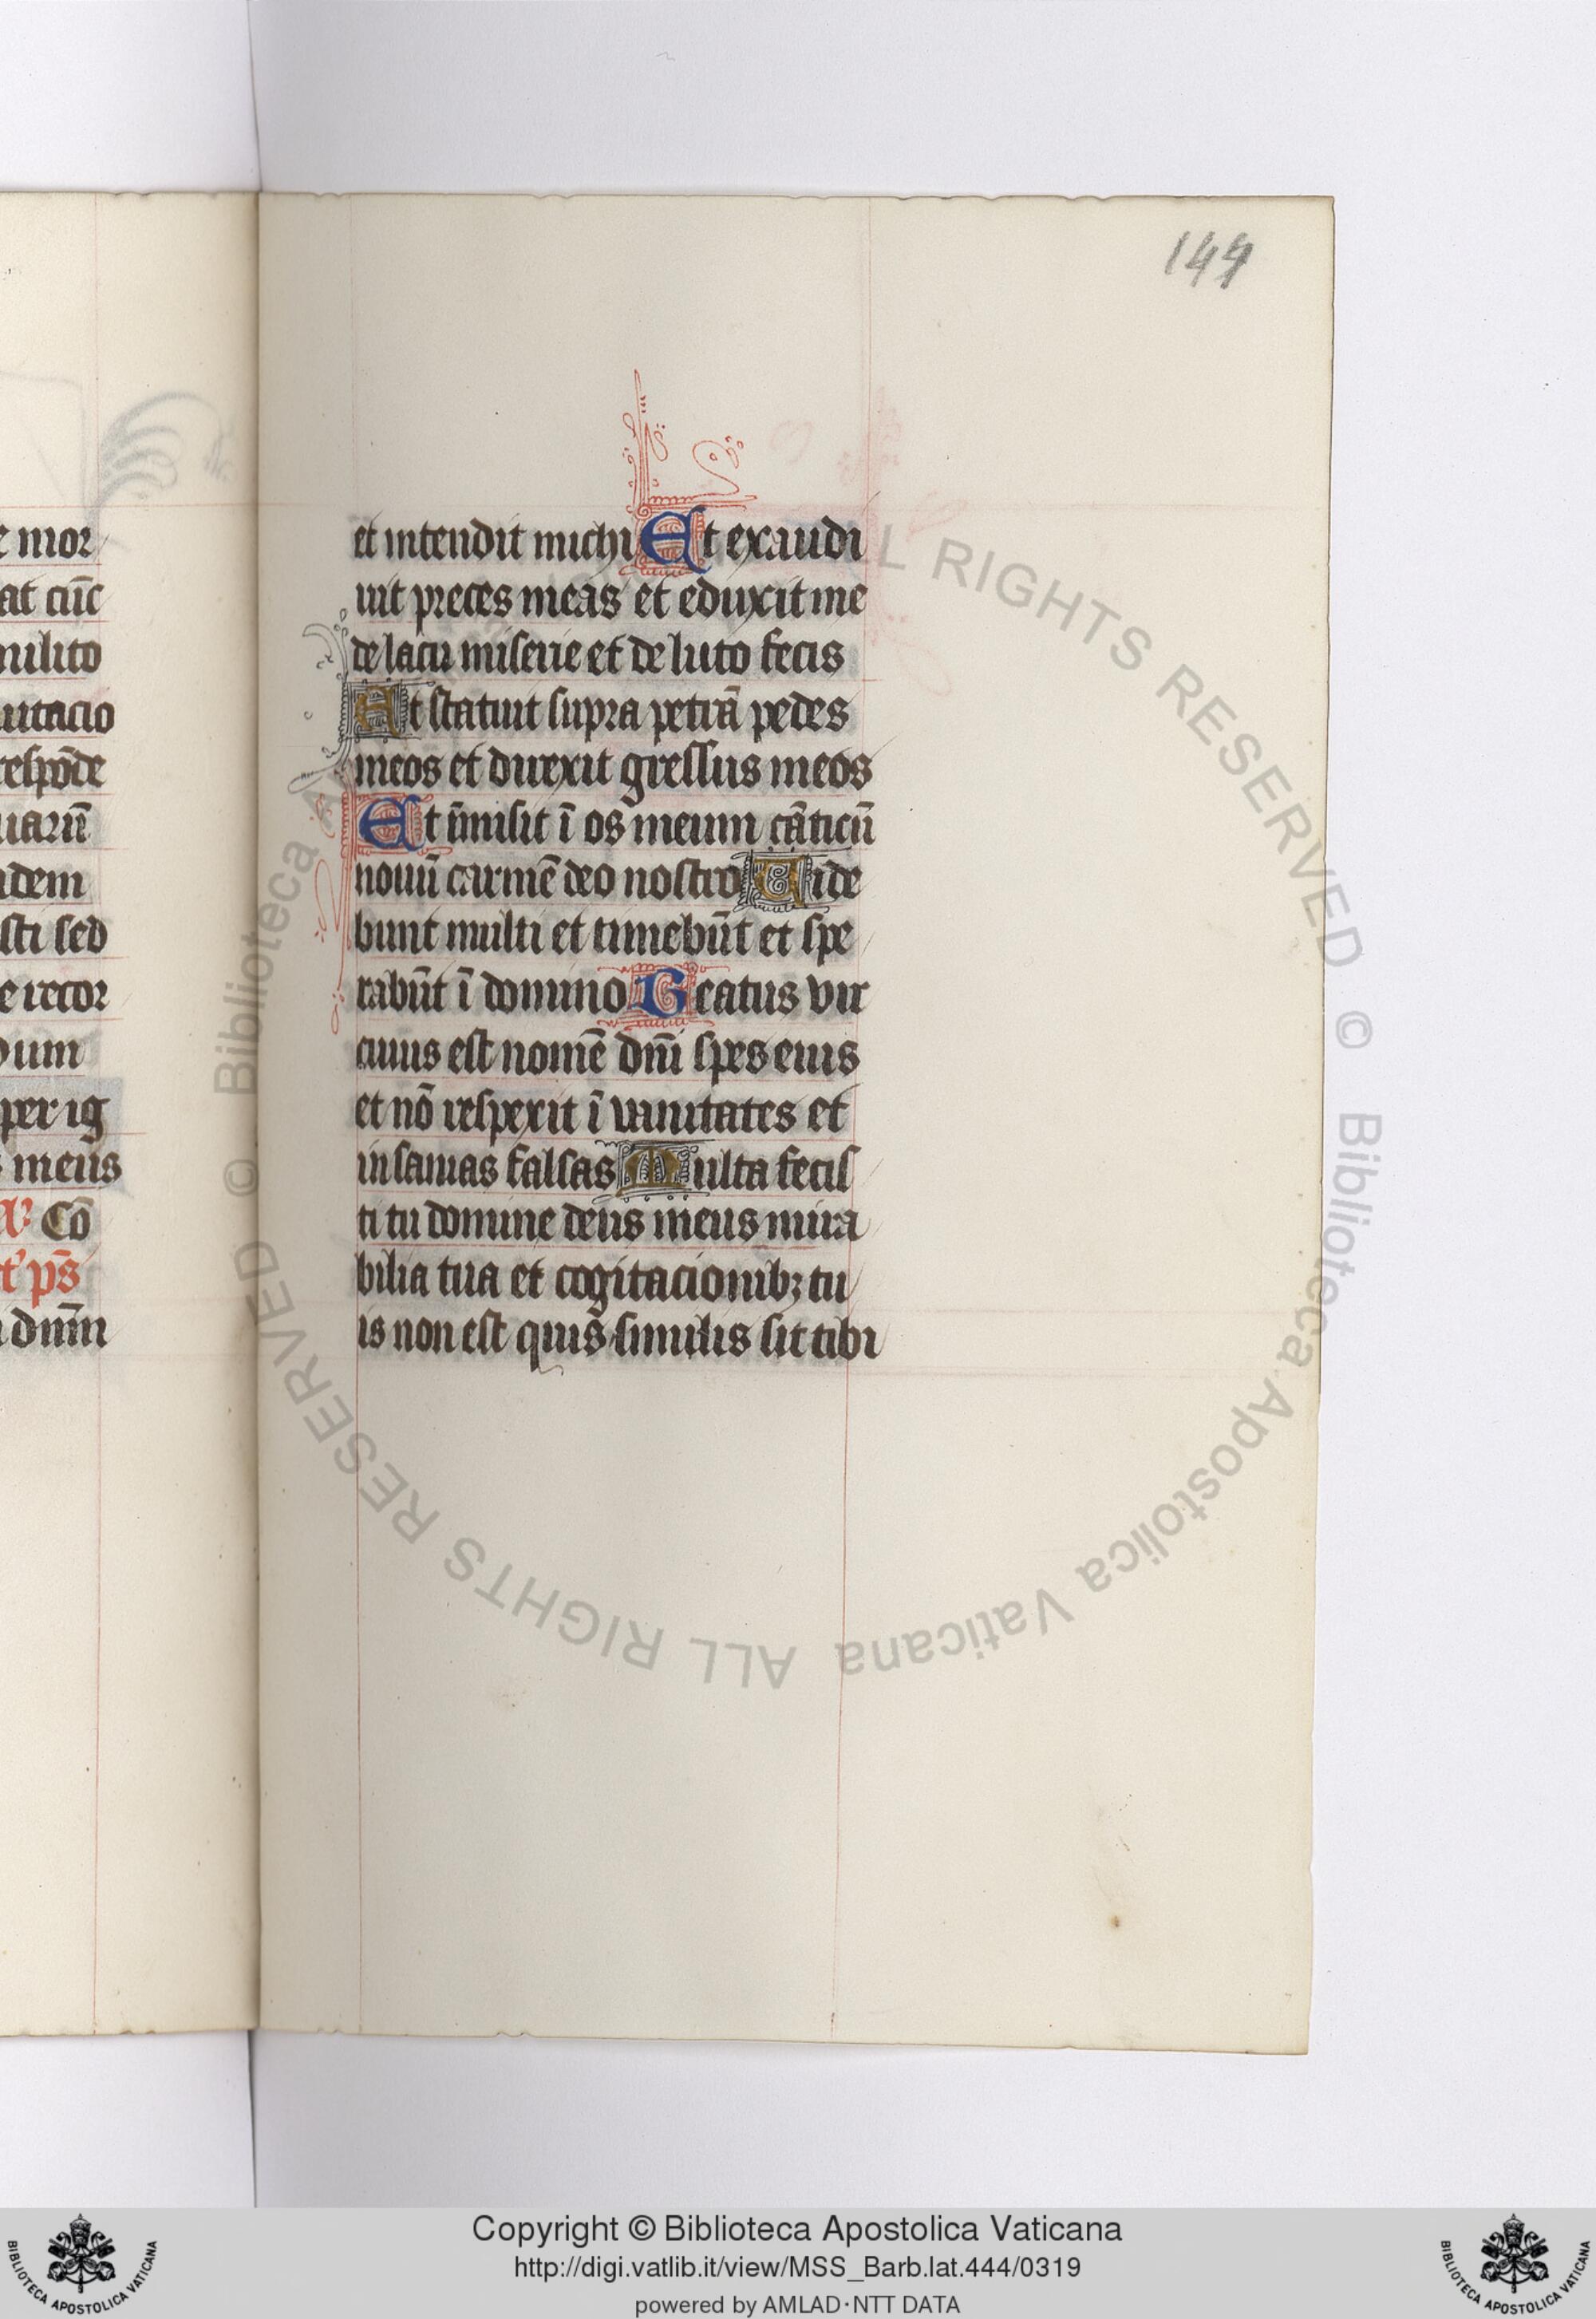 144
e mor
at cūc
milito
utacio
respōde
uarū
idem
sti sed
e recor
per ig
meus
Cō
ps̄
et intendit michi Et exaudi
uit preces meas et eduxit me
de lacu miserie et de luto fecis
Et statuit supra petrā pedes
meos et direxit gressus meos
Et īmisit ī os meum cāticū
nouū carmē deo nostro Uide
bunt multi et timebūt et spe
rabūt ī domino Beatus vir
cuius est nomē dn̄i spes eius
et nō respexit ī vanitates et
insanias falsas Multa fecis
ti tu domine deus meus mira
bilia tua et cogitacionibꝫ tu
is non est quis similis sit tibi
ALL RIGHTS RESERVED © Biblioteca Apostolica Vaticana ALL RIGHTS RESERVED © Biblioteca A
Copyright © Biblioteca Apostolica Vaticana
http://digi.vatlib.it/view/MSS_Barb.lat.444/0319
powered by AMLAD·NTT DATA
BIBLIOTECA APOSTOLICA VATICANA
BIBLIOTECA APOSTOLICA VATICANA